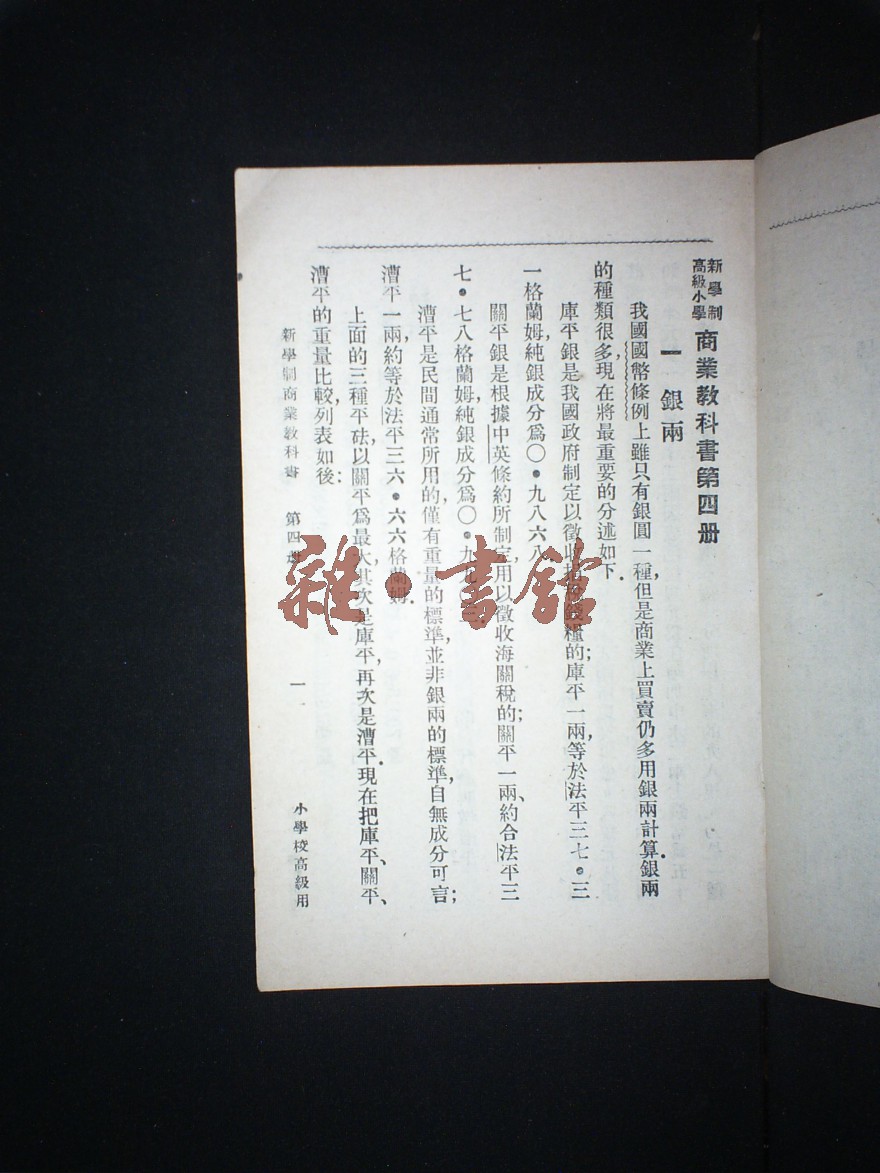 新學制
高級小學
商業教科書第四册
一 銀兩
我國國幣條例上雖只有銀圓一種,但是商業上買賣仍多用銀兩計算.銀兩
的種類很多,現在將最重要的分述如下.
庫平銀是我國政府制定以徵收錢糧的;庫平一兩,等於法平三七・三
一格蘭姆,純銀成分爲〇・九八六八
關平銀是根據中英條約所制定,用以徵收海關稅的;關平一兩、約合法平三
七・七八格蘭姆,純銀成分爲〇・九九〇
漕平是民間通常所用的,僅有重量的標準,並非銀兩的標準,自無成分可言;
漕平一兩,約等於法平三六・六六格蘭姆.
上面的三種平砝,以關平爲最大,其次是庫平,再次是漕平.現在把庫平、關平、
漕平的重量比較,列表如後:
新學制商業教科書 第四册 一 小學校高級用
雜・書館